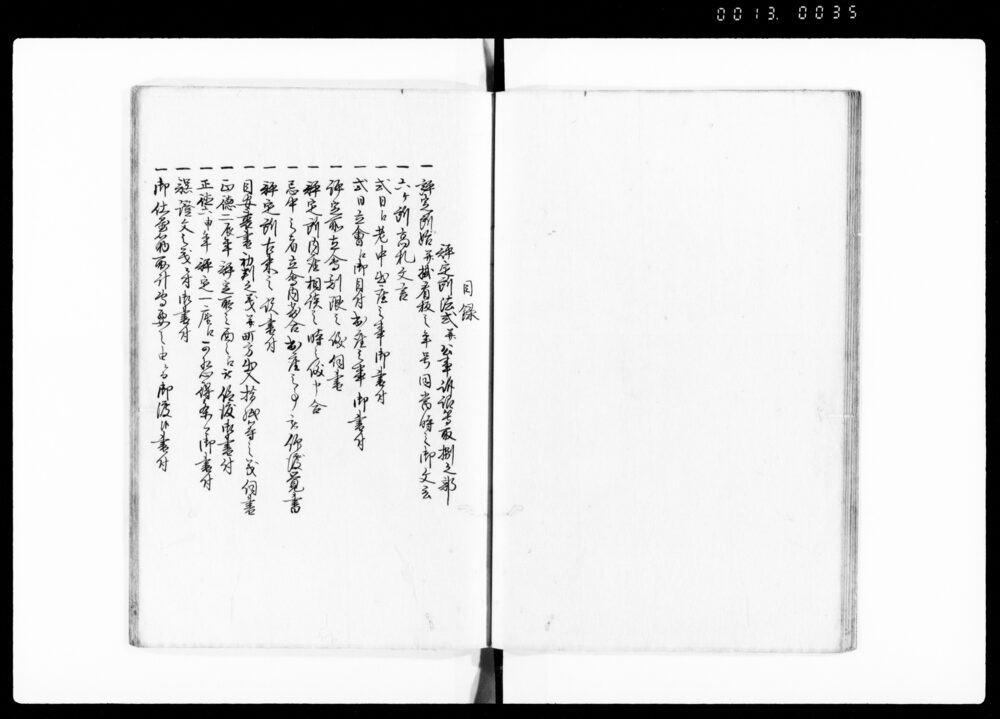 0013. 0035
目録
評定所法式并公事訴訟等取捌之部
一 評定所始并掛看板之年号同当時之御文言
一 六ヶ所高札文言
一 式日江老中出座之事御書付
一 式日立会江御目付出座之事御書付
一 評定所立会刻限之儀伺書
一 評定所内座相談之時之儀申合
一 忌中之者立会内寄合出座之事被仰渡覚書
一 評定所古来之訳書付
一 目安裏書初判之儀并町方出入捨紙等之義伺書
一 正徳二辰年評定所之面々江被仰渡御書付
一 正徳六申年評定一座江可心得条々御書付
一 謀證文之義ニ付御書付
一 御仕置 御渡候書付